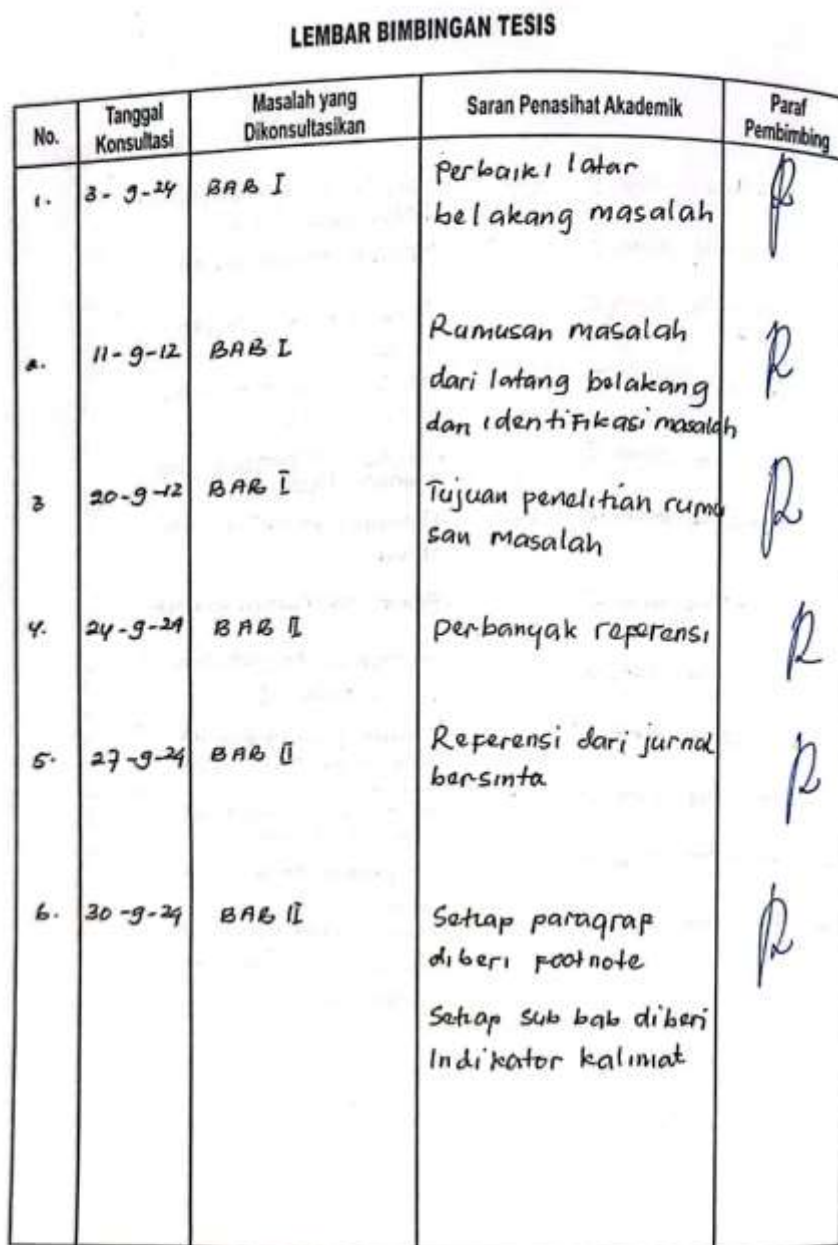 LEMBAR BIMBINGAN TESIS
No.
Tanggal
Konsultasi
Masalah yang
Dikonsultasikan
Saran Penasihat Akademik
Paraf
Pembimbing
1. 3-9-24 BAB I Perbaiki latar
belakang masalah
2. 11-9-12 BAB I Rumusan masalah
dari latang belakang
dan identifikasi masalah
3 20-9-12 BAB I Tujuan penelitian rumu
san masalah
4. 24-9-24 BAB II Perbanyak referensi
5. 27-9-24 BAB II Referensi dari jurnal
bersinta
6. 30-9-24 BAB II Setiap paragraf
diberi footnote
Setiap sub bab diberi
Indikator kalimat